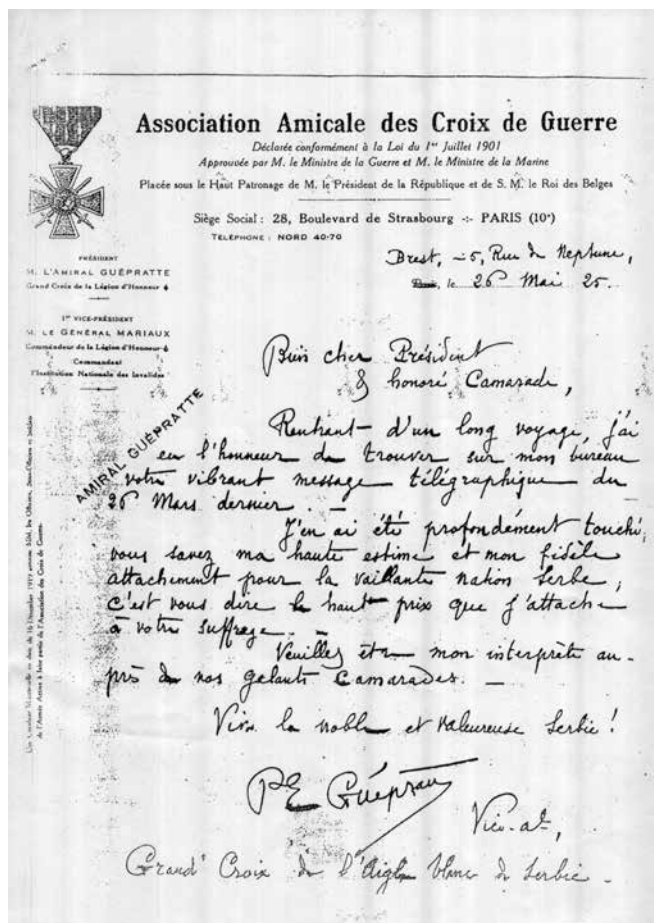 Association Amicale des Croix de Guerre
Déclarée conformément à la Loi du 1er Juillet 1901
Approuvée par M. le Ministre de la Guerre et M. le Ministre de la Marine
Placée sous le Haut Patronage de M. le Président de la République et de S. M. le Roi des Belges
Siège Social : 28, Boulevard de Strasbourg -:- PARIS (10e)
TÉLÉPHONE : NORD 40-70
PRÉSIDENT
M. L'AMIRAL GUÉPRATTE
Grand Croix de la Légion d'Honneur
1er VICE-PRÉSIDENT
M. LE GÉNÉRAL MARIAUX
Commandeur de la Légion d'Honneur
Commandant
l'Institution Nationale des Invalides
Brest, 5, Rue de Neptune,
Paris, le 26 Mai 25.
Bien cher Président
& honoré Camarade,
AMIRAL GUÉPRATTE
Rentrant d'un long voyage, j'ai
eu l'honneur de trouver sur mon bureau
votre vibrant message télégraphique du
26 Mars dernier. —
J'en ai été profondément touché,
vous savez ma haute estime et mon fidèle
attachement pour la vaillante nation Serbe,
c'est vous dire le haut prix que j'attache
à votre suffrage. —
Veuillez être mon interprète au-
près de nos galants Camarades. —
Vive la noble et valeureuse Serbie !
PE Guépratte
Vice-al,
Grand'Croix de l'Aigle blanc de Serbie.